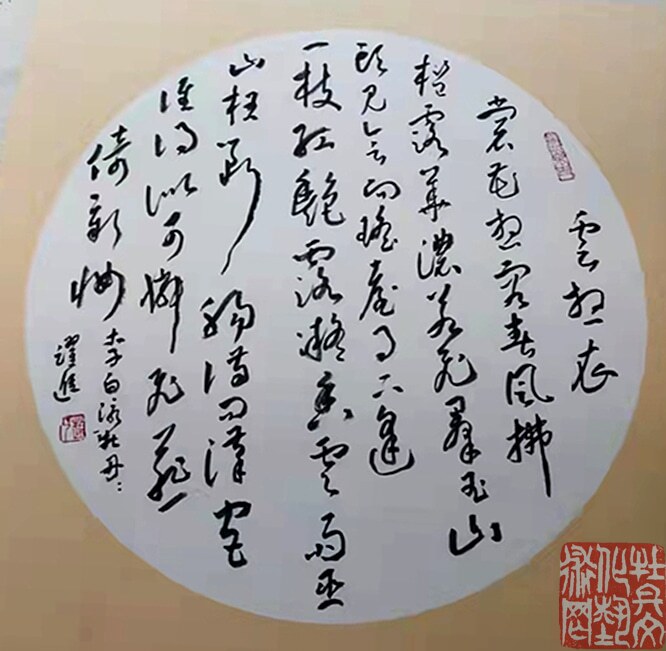 雲想衣
裳花想容春風拂
檻露華濃若非羣玉山
頭見會向瑤臺月下逢
一枝紅艷露凝香雲雨巫
山枉斷腸借問漢宮
誰得似可憐飛燕
倚新妝
李白詠牡丹
躍進
牡丹文化藝術网